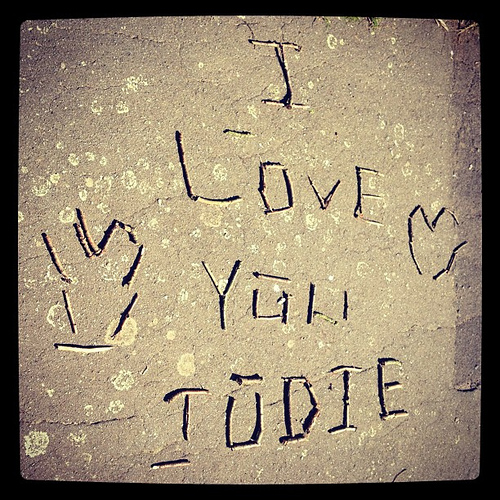 I
LOVE
YOU
JODIE